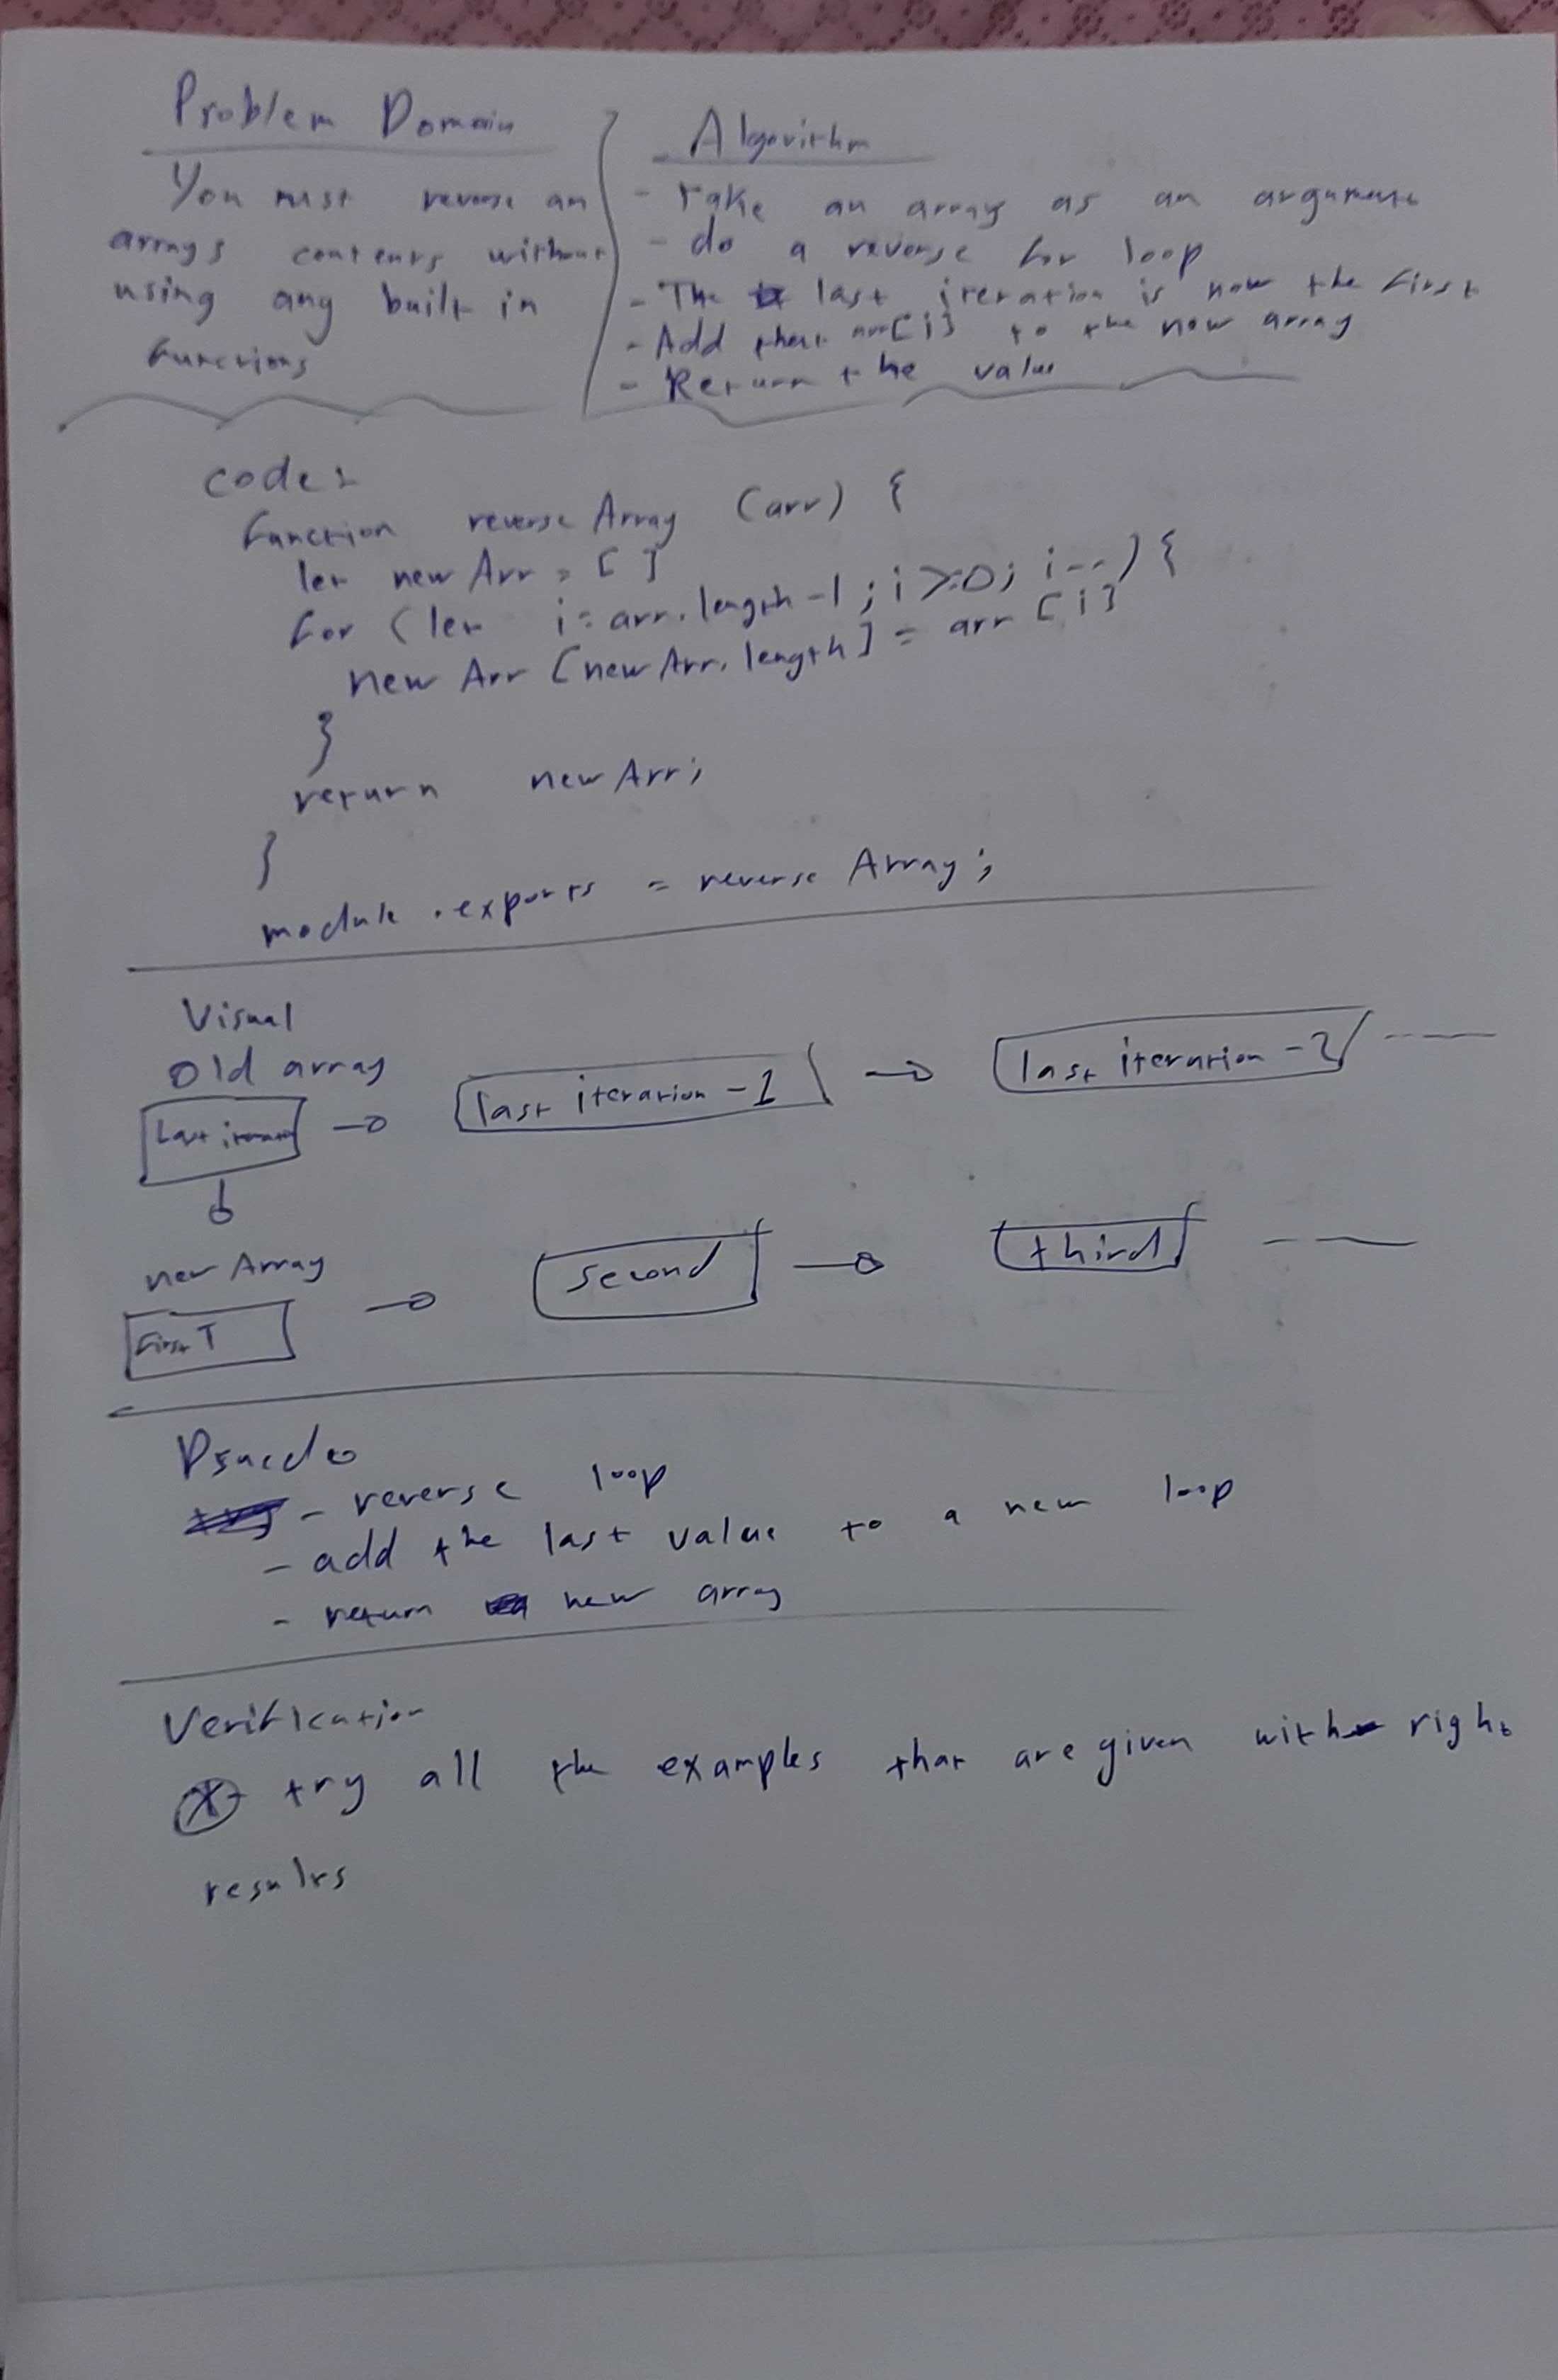 Problem Domain
You must reverse an
arrays contents without
using any built in
functions
Algorithm
- Take an array as an argument
- do a reverse for loop
- The last iteration is now the first
- Add that arr[i] to the new array
- Return the value
code:
function reverse Array (arr) {
let new Arr = [ ]
for (let i = arr.length -1 ; i >= 0 ; i--) {
new Arr [new Arr.length] = arr [i]
}
return new Arr;
}
module.exports = reverse Array;
Visual
Old array
Last iteration → last iteration -1 → last iteration -2 ----
new Array
First → second → third ——
- reverse loop
- add the last value to a new loop
- return new array
Verification
try all the examples that are given with right
results